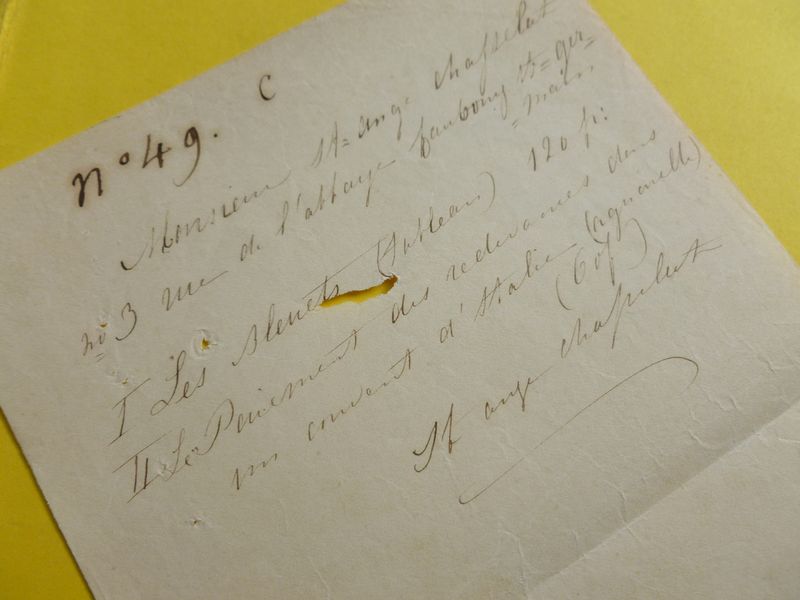 N° 49. C
Monsieur St=ange chasselat
n° 3 rue de l'abbaye faubourg St=ger=
=main
I Les (tableau) 120 f:
II Le Paiement des redevances dans
un couvent d'italie (aquarelle)
(60f)
St ange chasselat